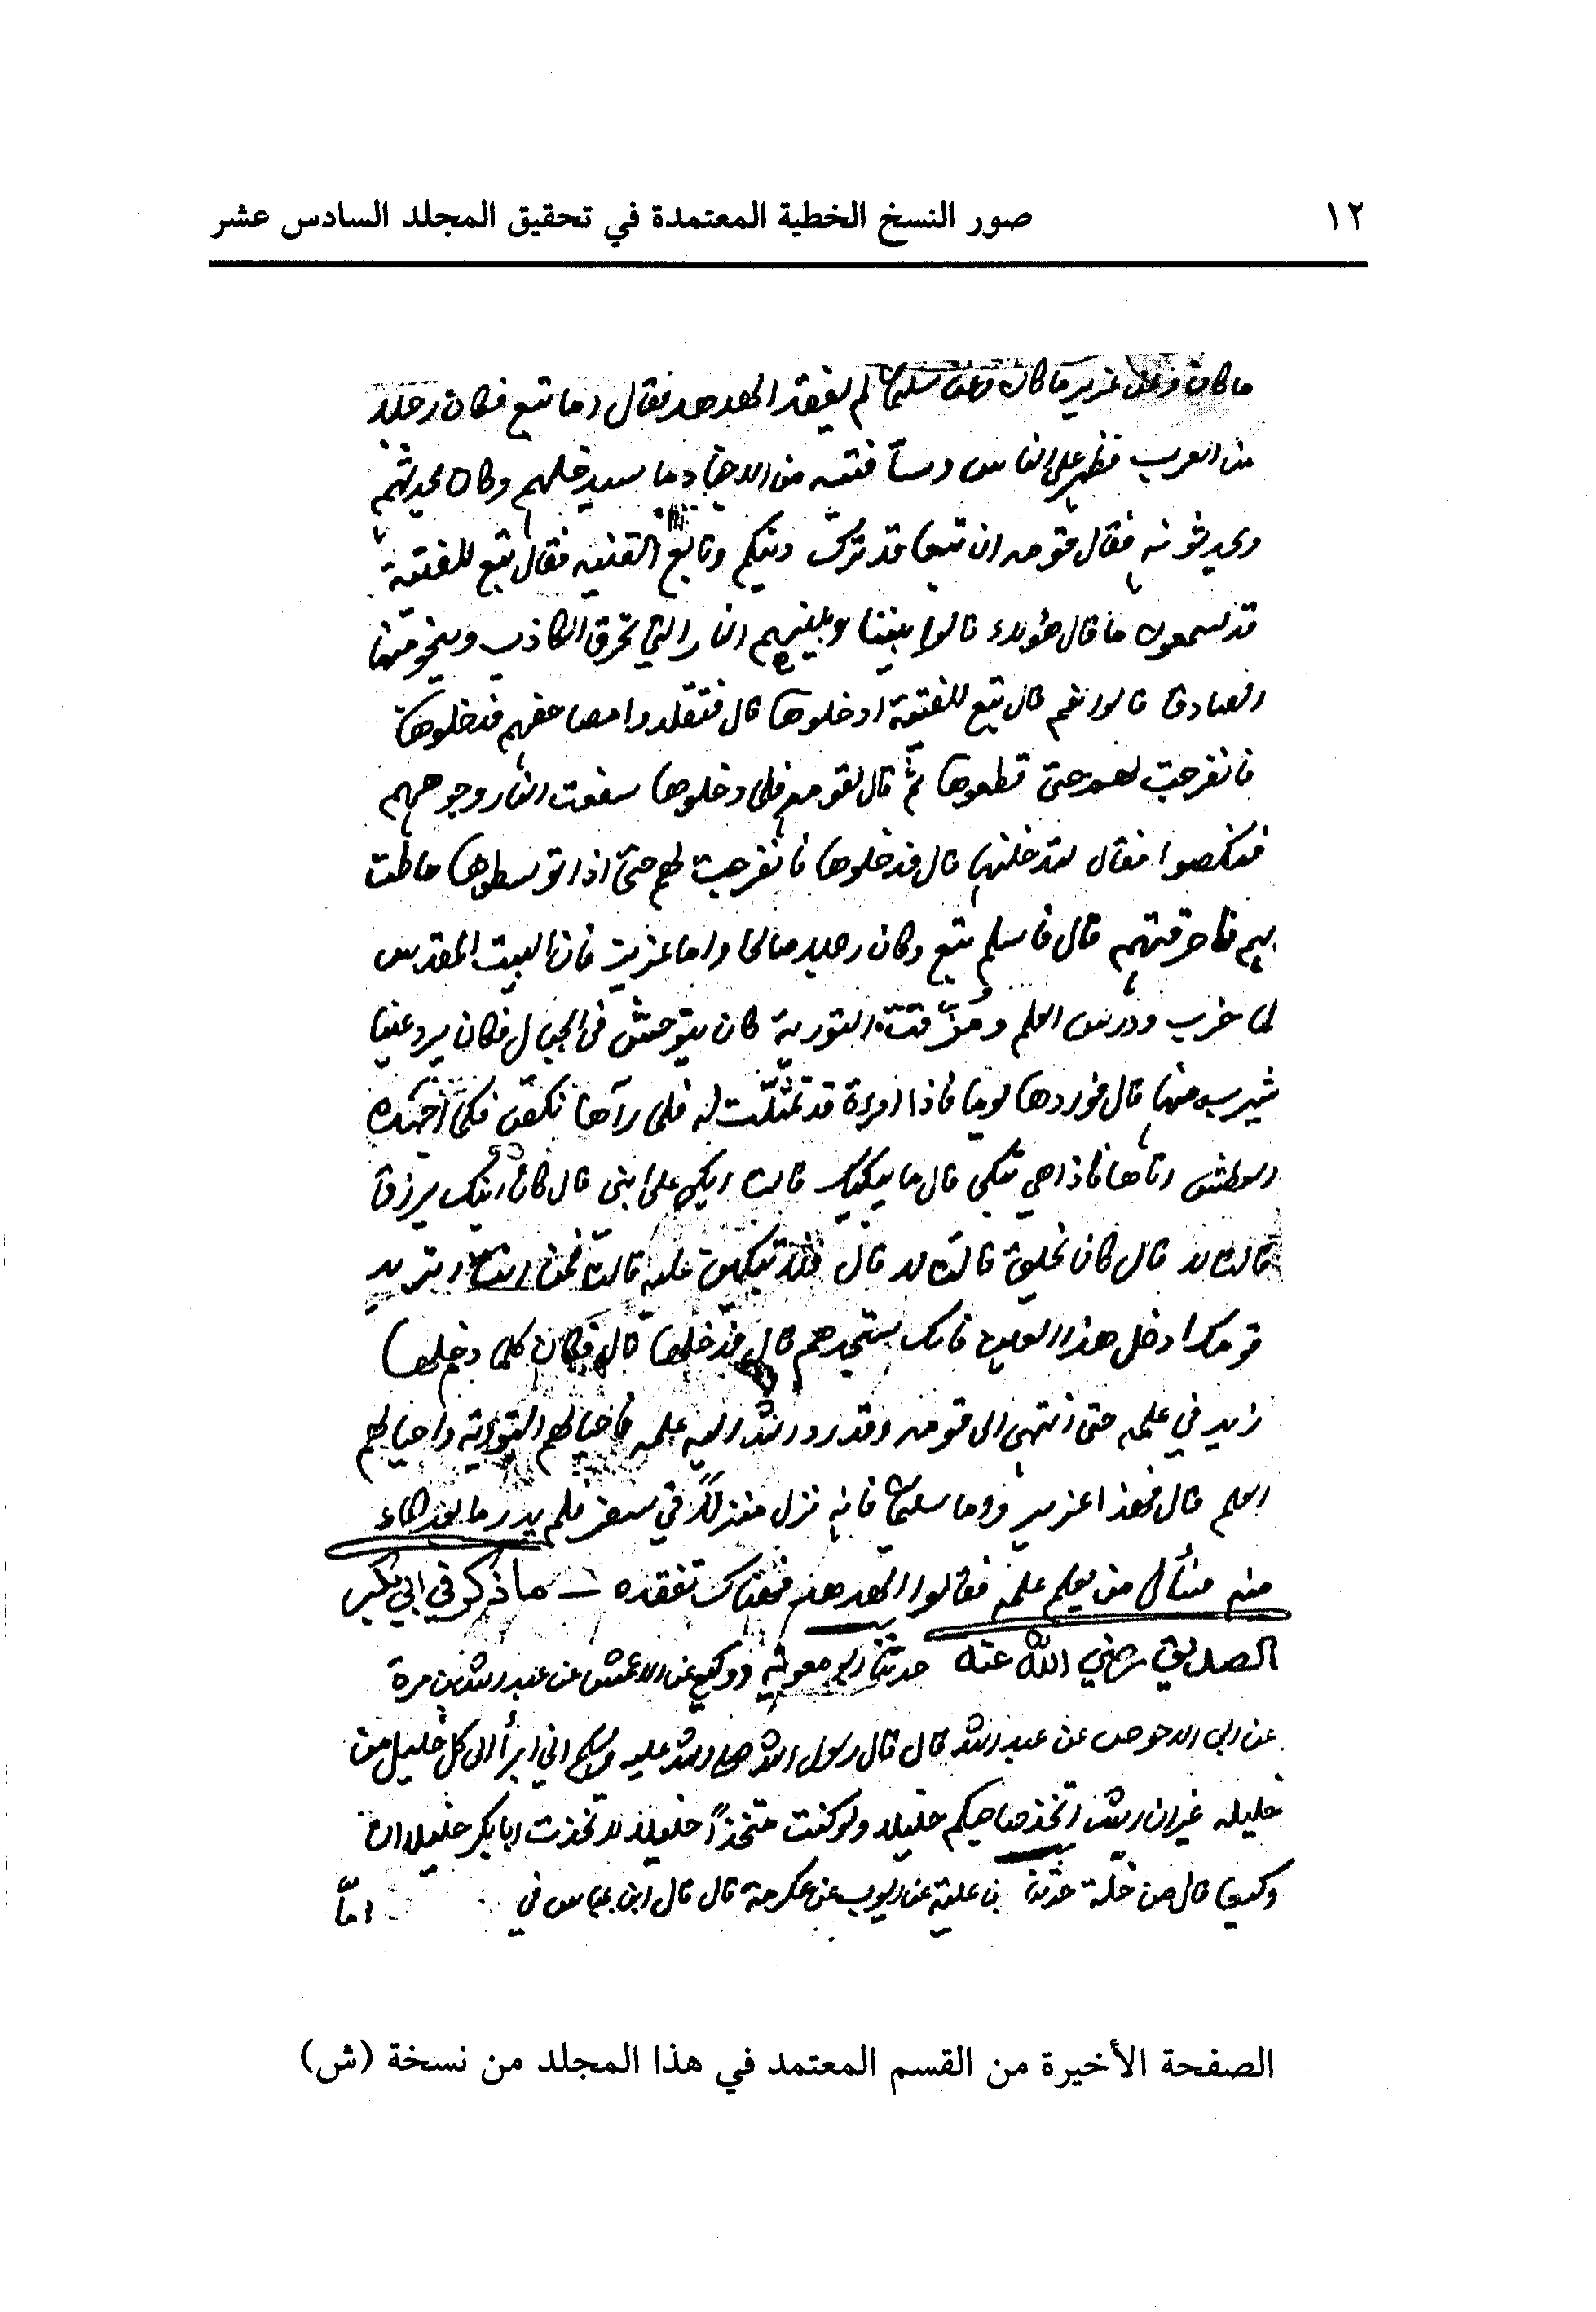 ١٢ صور النسخ الخطية المعتمدة في تحقيق المجلد السادس عشر
ما كان وعن عزير ما كان وعن سليمان لم يفقد الهدهد فقال اما تبع فكان رجلا
من العرب فظهر على الناس وسبا فتية من الاحبار فاستدخلهم وكان يحدثهم
ويحدثونه فقال قومه ان تبعا قد ترك دينكم وتابع الفتية فقال تبع للفتية
قد تسمعون ما قال هؤلاء قالوا بيننا وبينهم النار التي تحرق الكاذب وينجو منها
الصادق قالوا نعم قال تبع للفتية ادخلوها قال فتقلدوا مصاحفهم فدخلوها
فانفرجت لهم حتى قطعوها ثم قال لقومه فلما دخلوها سفعت النار وجوههم
فنكصوا فقال لتدخلنها قال فدخلوها فانفرجت لهم حتى اذا توسطوها حاطت
بهم فاحرقتهم قال فاسلم تبع وكان رجلا صالحا واما عزير فان البيت المقدس
لما خرب ودرس العلم ومزقت التورية كان يتوحش في الجبال فكان يرد عينا
يشرب منها قال فوردها يوما فاذا امرءة قد تمثلت له فلما رآها نكص فلما اجهده
العطش اتاها فاذا هي تبكي قال ما يبكيك قالت ابكي على ابني قال كان ابنك يرزق
قالت لا قال كان يخلق قالت لا قال فلا تبكين عليه قالت فمن انت اتريد
قومك ادخل هذا العين فانك ستجدهم قال فدخلها قال فكان كلما دخلها
زيد في علمه حتى انتهى الى قومه وقد رد الله اليه علمه فاحيا لهم التورية واحيا لهم
العلم قال فهذا عزير واما سليمان فانه نزل منزلا في سفر فلم يدر ما بعد الماء
منه فسأل من يعلم علمه فقالوا الهدهد فهناك تفقده ــ ما ذكر في ابي بكر
الصديق رضي الله عنه حدثنا ابو معوية ووكيع عن الاعمش عن عبد الله بن مرة
عن ابي الاحوص عن عبد الله قال قال رسول الله صلى الله عليه وسلم اني ابرأ الى كل خليل من
خليله غير ان الله اتخذ صاحبكم خليلا ولو كنت متخذا خليلا لاتخذت ابا بكر خليلا ان
وكيعا قال من خلة حدثنا بن علية عن ايوب عن عكرمة قال قال ابن عباس في
اما
الصفحة الأخيرة من القسم المعتمد في هذا المجلد من نسخة (ش)